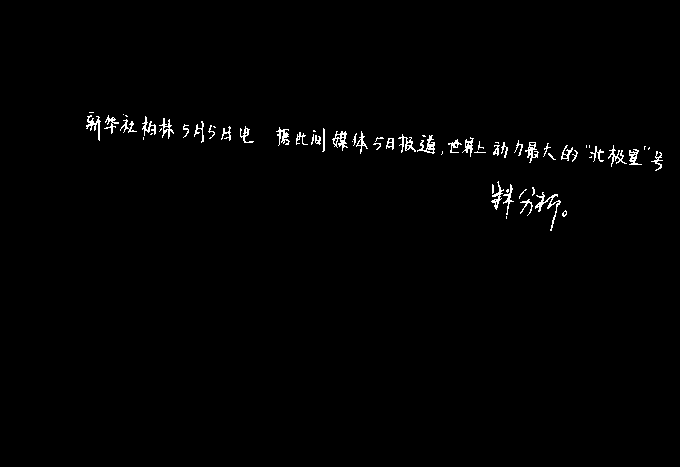 新华社柏林5月5日电 据此间媒体5日报道,世界上动力最大的“北极星”号
料分析。